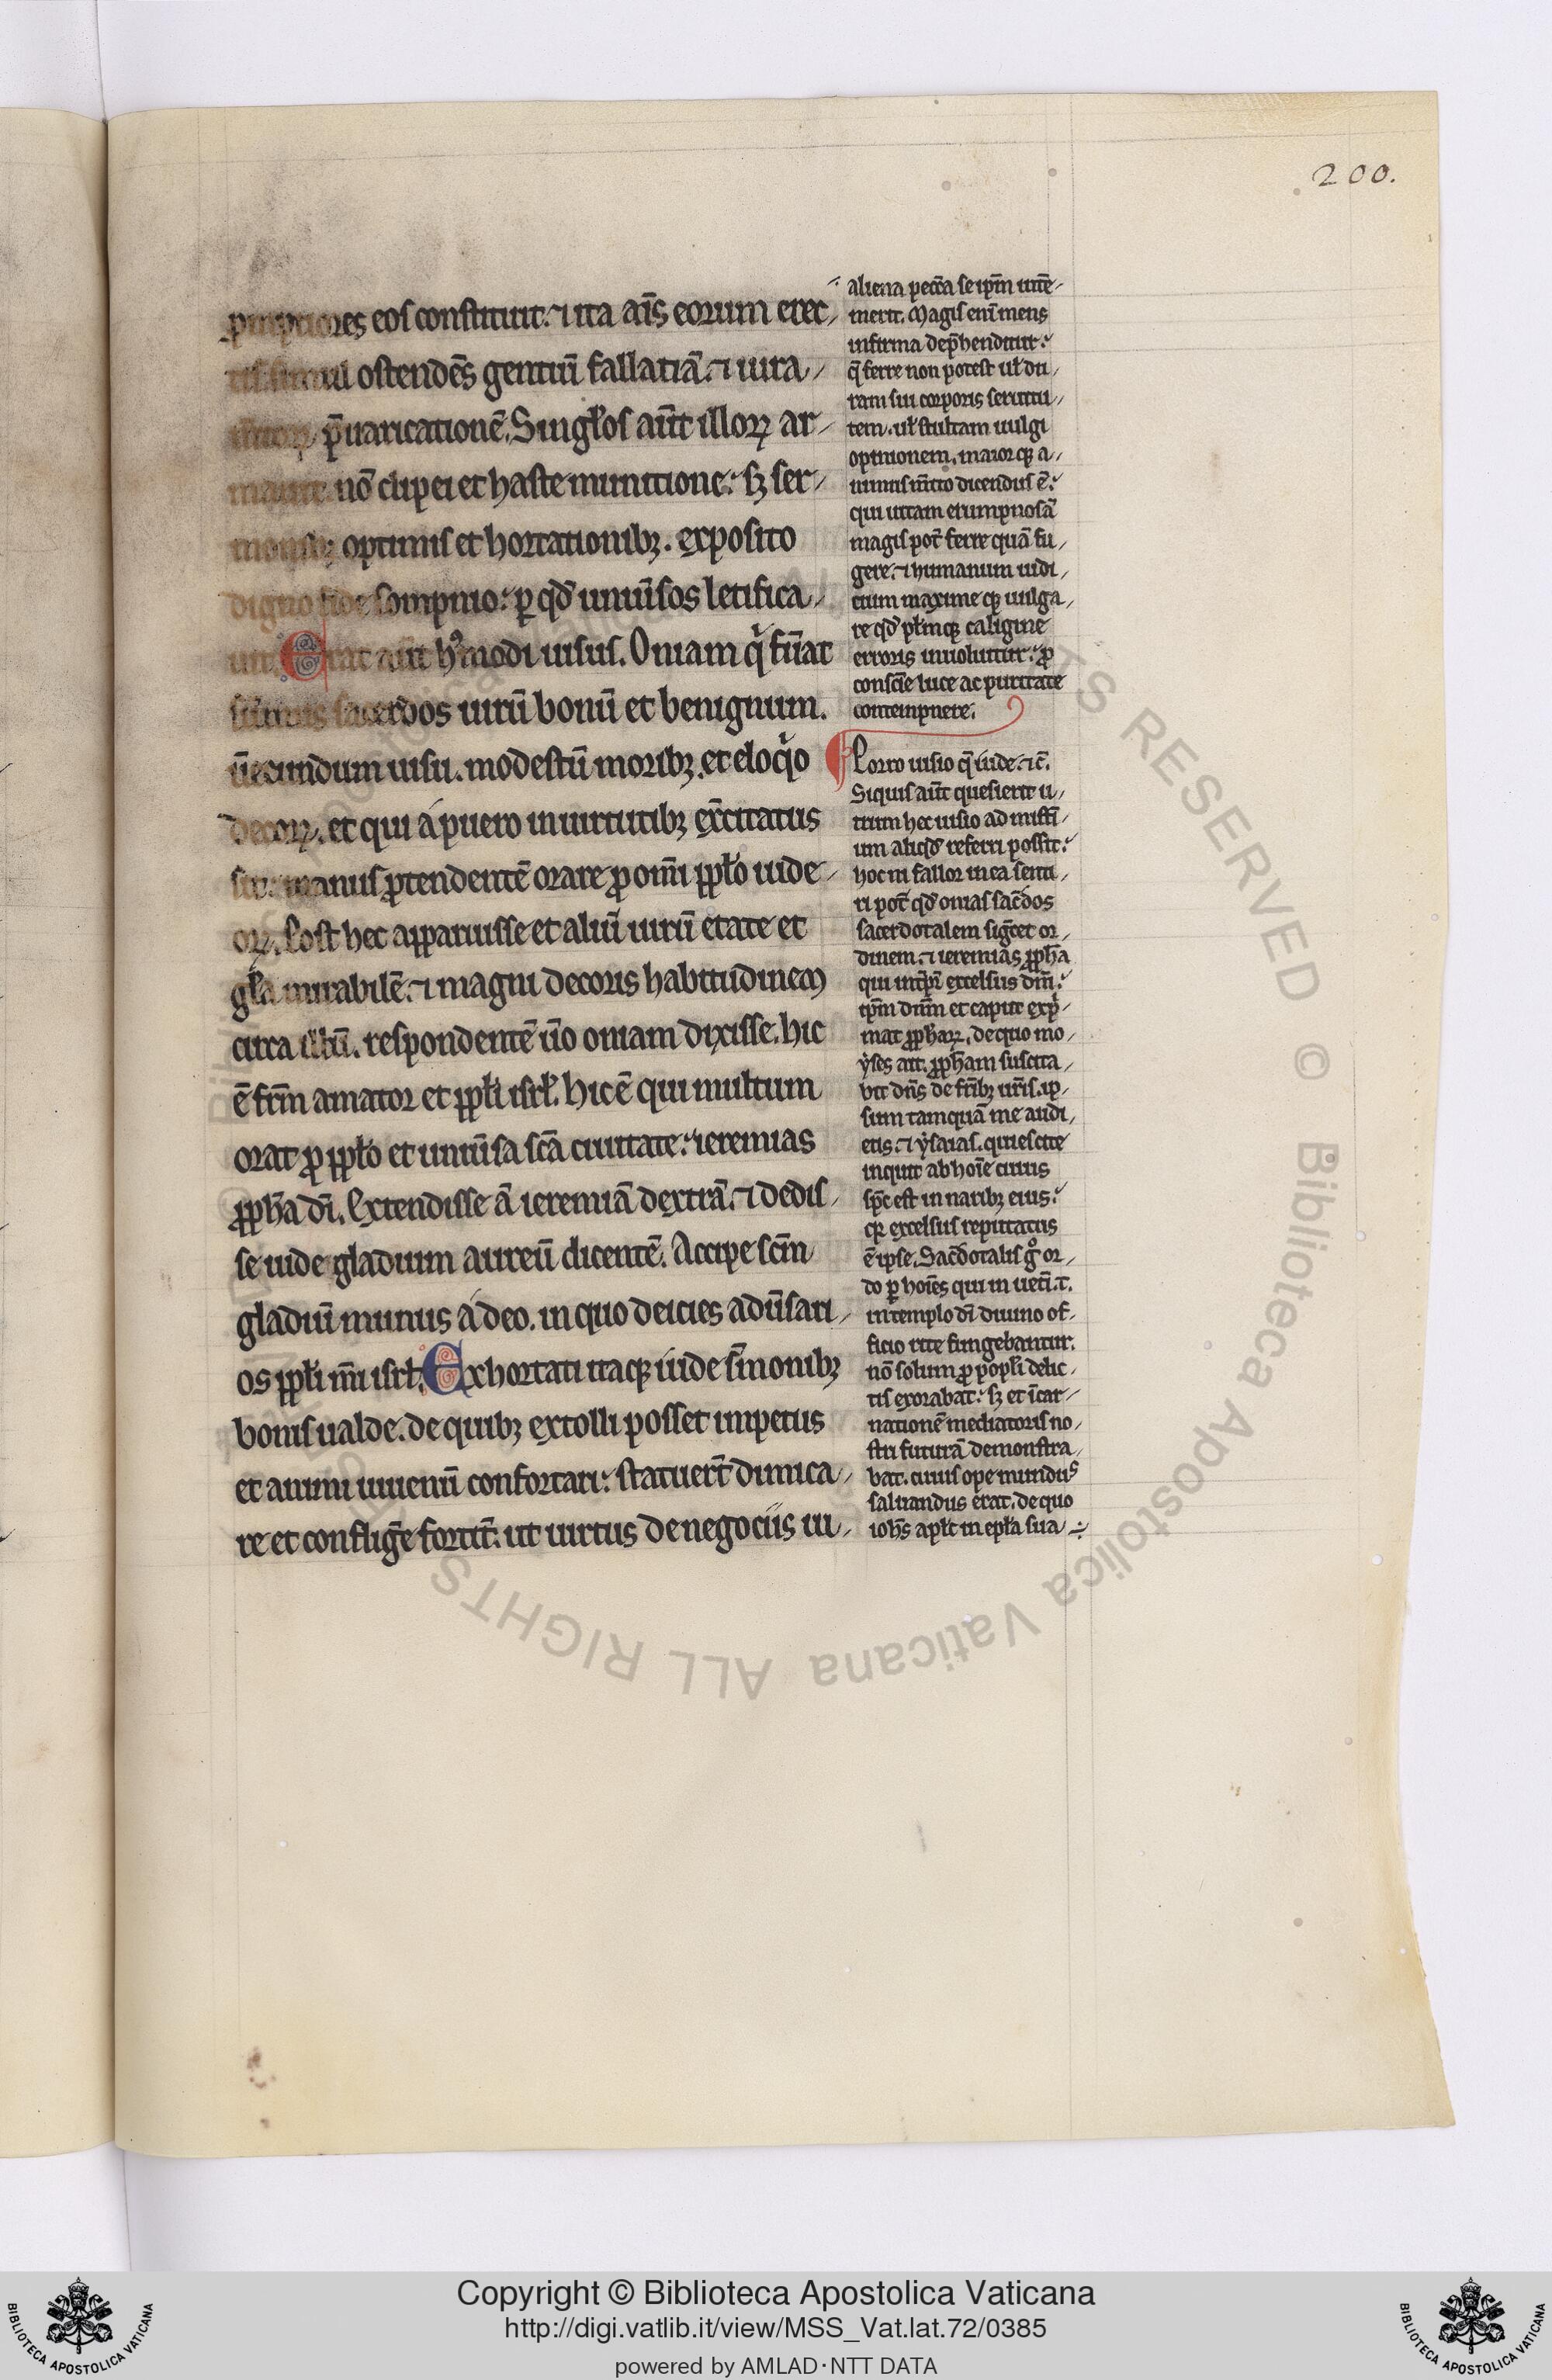 200.
promptiores eos constituit. ⁊ ita aīs eorum erec
tis simul ostendēs gentiū fallatiā. ⁊ iura
p̄uaricationē. Singl̄os aūt illoꝝ ar
mauit nō clipei et haste munitione: sꝫ ser
monibꝫ optimis et hortationibꝫ. exposito
digno fide sompnio: ꝑ qd̄ uniūsos letifica
uit. Erat aūt hꝰmodi uisus. Oniam qͥ fūat
sūmus sacerdos uirū bonū et benignum.
ūecundum uisu. modestū moribꝫ. et eloqͥo
decoꝝ. et qui a puero in uirtutibꝫ exc̄itatus
sit: manus ꝓtendentē orare ꝓ om̄i ppl̄o iude
oꝝ. Post hec apparuisse et aliū uirū etate et
gl̄a mirabilē. ⁊ magni decoris habitudinem
circa illū. respondentē ūo oniam dixisse. hic
ē fr̄m amator et ppl̄i isrl̄. hic ē qui multum
orat ꝓ ppl̄o et uniūsa sc̄a ciuitate: ieremias
ꝓph̄a dī. Extendisse ā ieremiā dextrā. ⁊ dedis
se iude gladium aureū dicentē. Accipe sc̄m
gladiū munus a deo. in quo deicies adūsari
os ppl̄i m̄i isrl̄. Exhortati itaqꝫ iude s̄monibꝫ
bonis ualde. de quibꝫ extolli posset impetus
et animi iuuenū confortari: statuer̄t dimica
re et confliḡe fortit̄. ut uirtus de negociis iu
aliena pecc̄a se ip̄m inte
merit. Magis enī mens
infirma dep̄henditur:
q̄ ferre non potest ul̄ du
ram sui corporis seruitu
tem. ul̄ stultam uulgi
opinionem. maiorqꝫ a
nimus m̄ito dicendus ē:
qui uitam erumpnosā
magis pot̄ ferre quā fu
gere. ⁊ humanum iudi
cium maximeqꝫ uulga
re qd̄ pl̄mqꝫ caligine
erroris inuoluitur: ꝓ
consc̄ie luce ac puritate
contempnere.
Porro uisio q̄ iude. ⁊c̄.
Siquis aūt quesierit u
trum hec uisio ad mist̄i
um aliqd̄ referri possit:
hoc ni fallor in ea senti
ri pot̄ qd̄ onias sac̄dos
sacerdotalem siḡcet or
dinem. ⁊ ieremias ꝓph̄a
qui int̄p̄r excelsus dn̄i:
ip̄m dn̄m et caput expͥ
mat ꝓph̄aꝝ. de quo mo
yses ait. ꝓph̄am suscita
bit dn̄s de fr̄ibꝫ ur̄is. ip
sum tamquā me audi
etis. ⁊ ysaias. quiescite
inquit ab hoīe cuius
sp̄c est in naribꝫ eius:
qꝛ excelsus reputatus
ē ipse. Sac̄dotalis gͦ or
do ꝑ hoīes qui in uet̄i .t.
in templo dī diuino of
ficio rite fungebantur.
nō solum ꝓ popl̄i delic
tis exorabat: sꝫ et īcar
nationē mediatoris no
stri futurā demonstra
bat. cuius ope mundus
saluandus erat. de quo
ioh̄s apl̄c in epl̄a sua
Copyright © Biblioteca Apostolica Vaticana
http://digi.vatlib.it/view/MSS_Vat.lat.72/0385
powered by AMLAD·NTT DATA